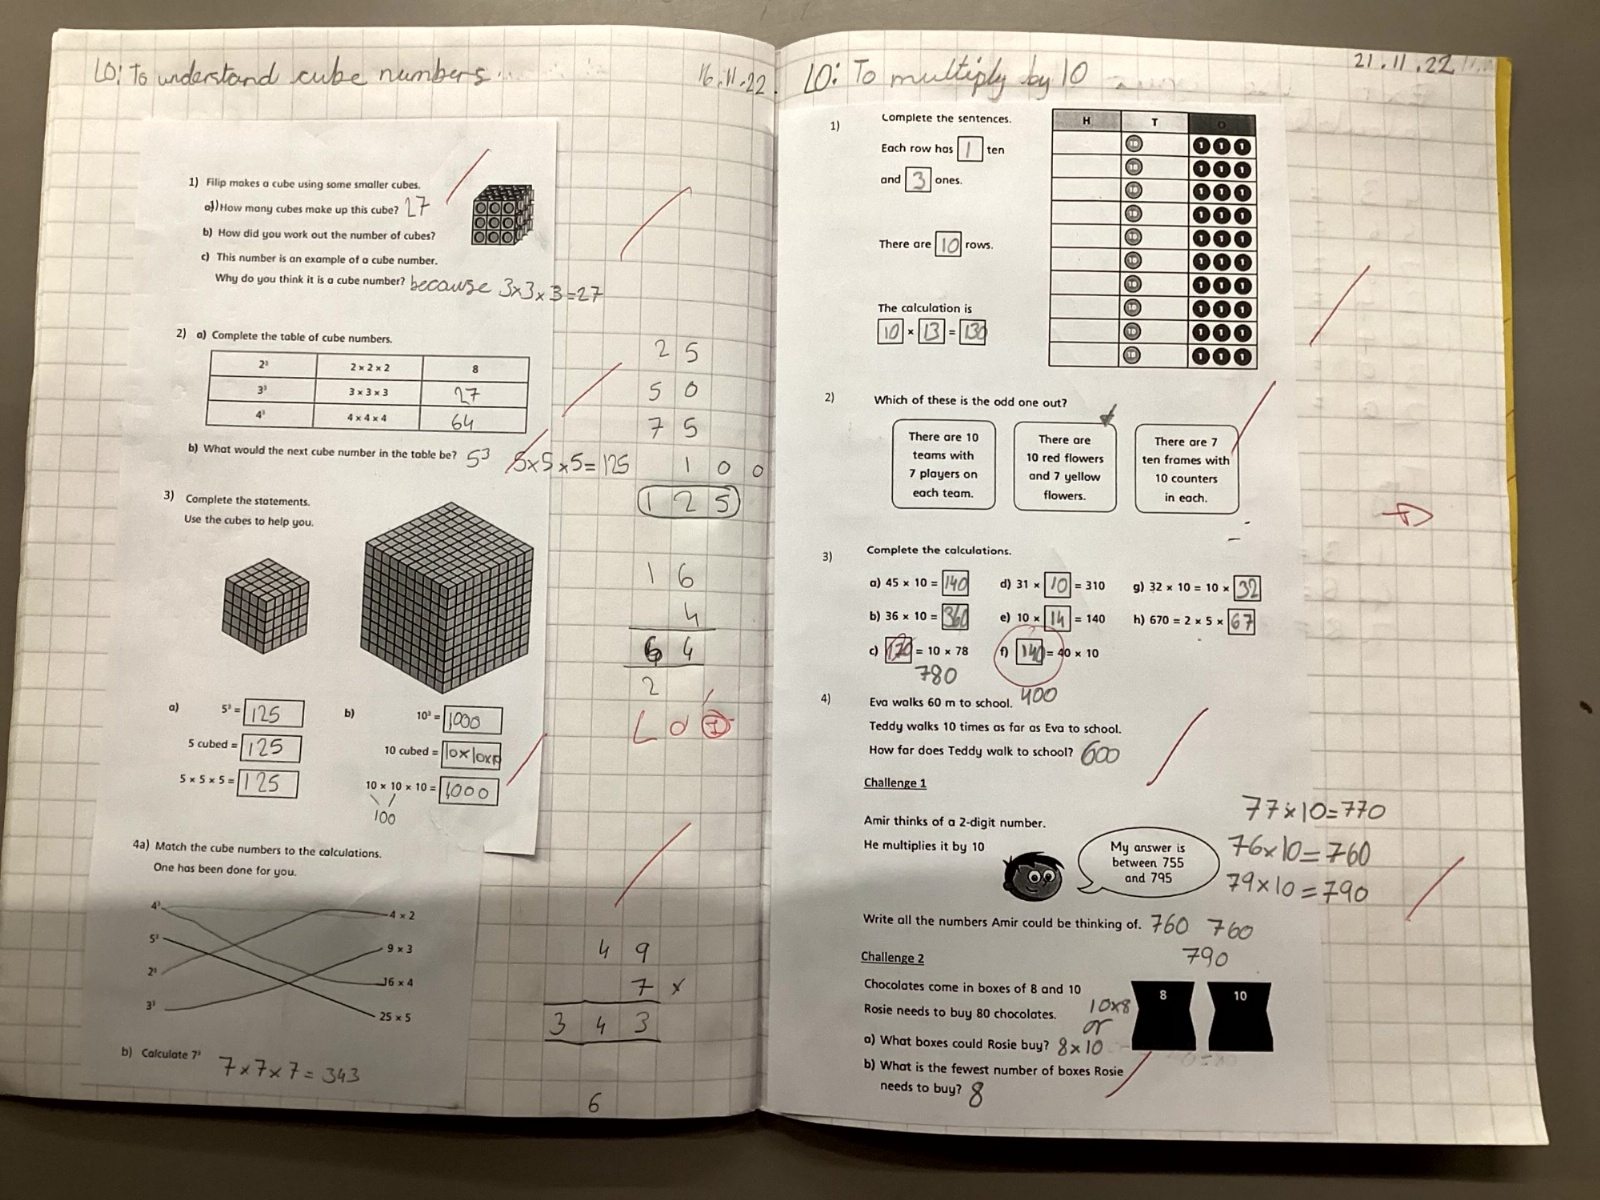 LO: To understand cube numbers.
16.11.22
1) Filip makes a cube using some smaller cubes.
a) How many cubes make up this cube? 27
b) How did you work out the number of cubes?
c) This number is an example of a cube number.
Why do you think it is a cube number? because 3×3×3=27
2) a) Complete the table of cube numbers.
2³ 2 × 2 × 2 8
3³ 3 × 3 × 3 27
4³ 4 × 4 × 4 64
b) What would the next cube number in the table be? 5³ 5×5×5=125
3) Complete the statements.
Use the cubes to help you.
a) 5³ = 125
5 cubed = 125
5 × 5 × 5 = 125
b) 10³ = 1000
10 cubed = 10×10×10
10 × 10 × 10 = 1000
100
4a) Match the cube numbers to the calculations.
One has been done for you.
4³ 4 × 2
5³ 9 × 3
2³ 16 × 4
3³ 25 × 5
b) Calculate 7³ 7×7×7=343
25
50
75
100
125
16
4
64
2
LO
49
7 ×
343
6
LO: To multiply by 10
21.11.22
1) Complete the sentences.
Each row has 1 ten
and 3 ones.
There are 10 rows.
The calculation is
10 × 13 = 130
H T O
10 1 1 1
10 1 1 1
10 1 1 1
10 1 1 1
10 1 1 1
10 1 1 1
10 1 1 1
10 1 1 1
10 1 1 1
10 1 1 1
2) Which of these is the odd one out?
There are 10
teams with
7 players on
each team.
There are
10 red flowers
and 7 yellow
flowers.
There are 7
ten frames with
10 counters
in each.
3) Complete the calculations.
a) 45 × 10 = 140 d) 31 × 10 = 310 g) 32 × 10 = 10 × 32
b) 36 × 10 = 360 e) 10 × 14 = 140 h) 670 = 2 × 5 × 67
c) = 10 × 78 f) 140 = 40 × 10
780
400
4) Eva walks 60 m to school.
Teddy walks 10 times as far as Eva to school.
How far does Teddy walk to school? 600
Challenge 1
Amir thinks of a 2-digit number.
He multiplies it by 10
My answer is
between 755
and 795
77×10=770
76×10=760
79×10=790
Write all the numbers Amir could be thinking of. 760 760
790
Challenge 2
Chocolates come in boxes of 8 and 10
Rosie needs to buy 80 chocolates. 10×8
or
a) What boxes could Rosie buy? 8×10
b) What is the fewest number of boxes Rosie
needs to buy? 8
8 10